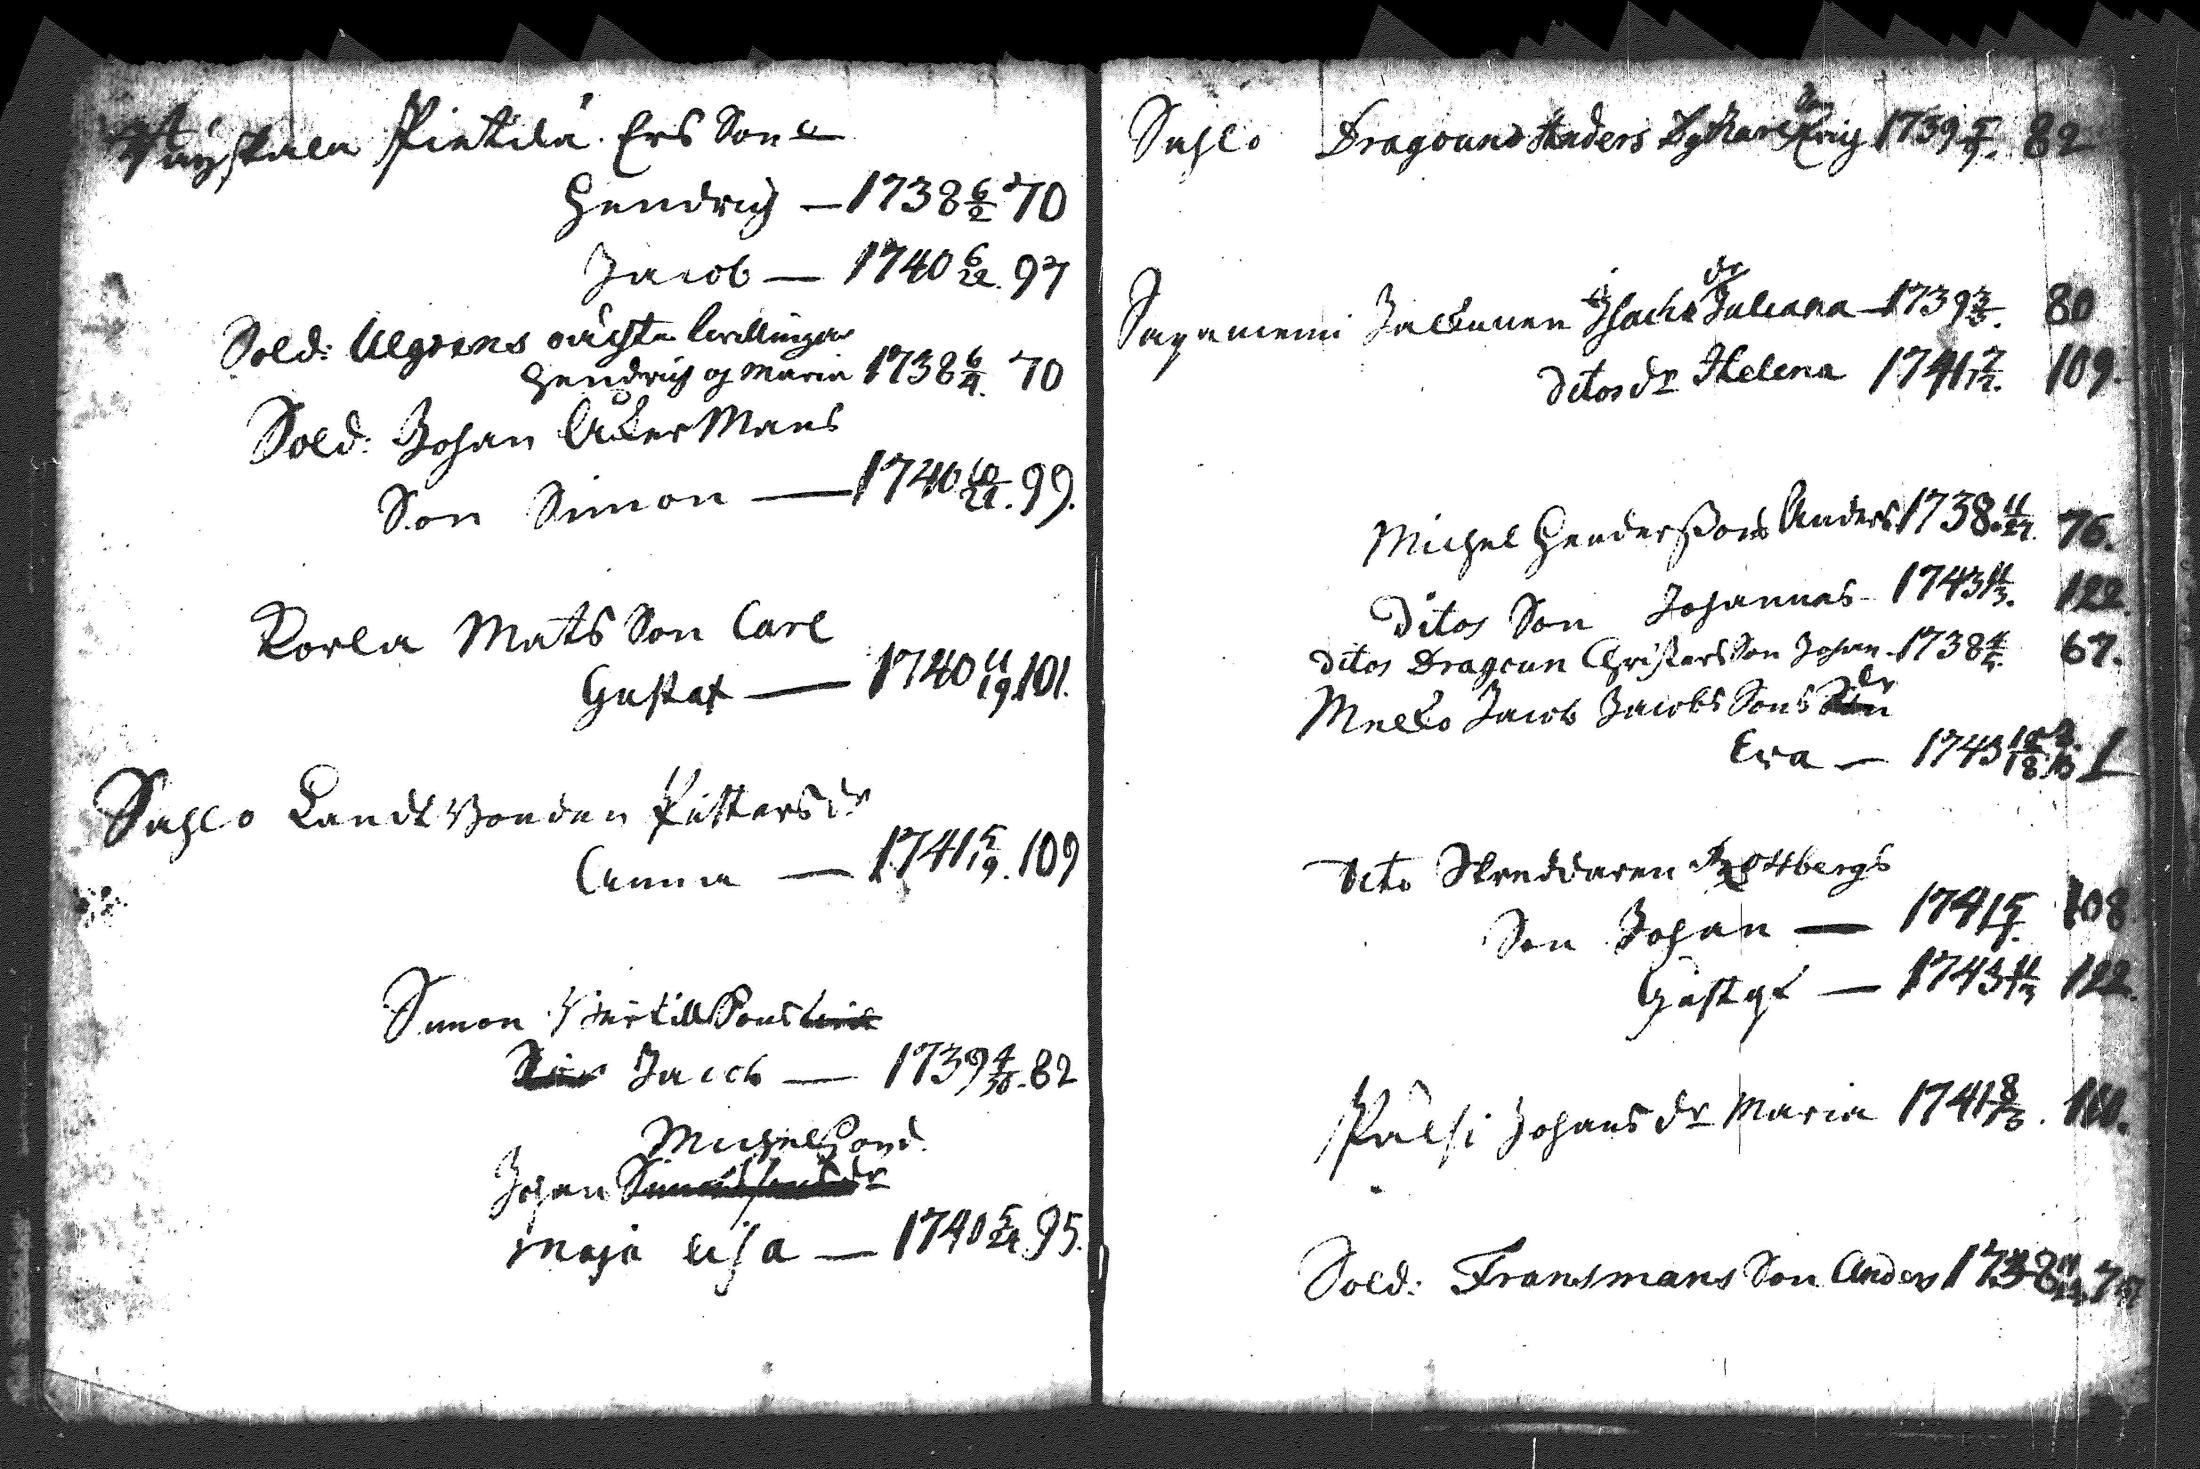 Pietilä Ers Son
Hendrich — 1738 6/2 70
Jacob — 1740 6/22. 97
Sold: Ulgrens oächta tvillingar
Hendrich og Maria 1738 6/4. 70
Sold: Johan AckerMans
Son Simon — 1740 10/21. 99.
Korla Mats Son Carl
Gustaf — 1740 11/19 101.
Sahlo Landt Bonden Pitters dr
Anna — 1741 5/19. 109
Simon Bertill Sons
Jacob — 1739 4/30. 82
Michel Sons
Johan dr
Maja Lisa — 1740 5/24. 95.
Sahlo Dragouns Anders Erig 1739 5/9. 82
Jackunen Isachs dr Juliana — 1739 3/3. 80
Ditos dr Helena 1741 7/12. 109.
Michel Hendersons Anders 1738. 11/27. 76.
Ditos Son Johannes — 1743 11/3. 122.
Ditos Dragoun Christers Son Johan — 1738 4/5. 67.
Mello Jacob Jacobs Sons dr
Eva — 1743 12/18. 1
Dito Skreddaren
Son Johan — 1741 5/9. 108
Gustaf — 1743 11/3 122.
Pälsi Johans dr Maria 1741 8/3. 110.
Sold: Fransmans Son Anders 1738 11/12. 75